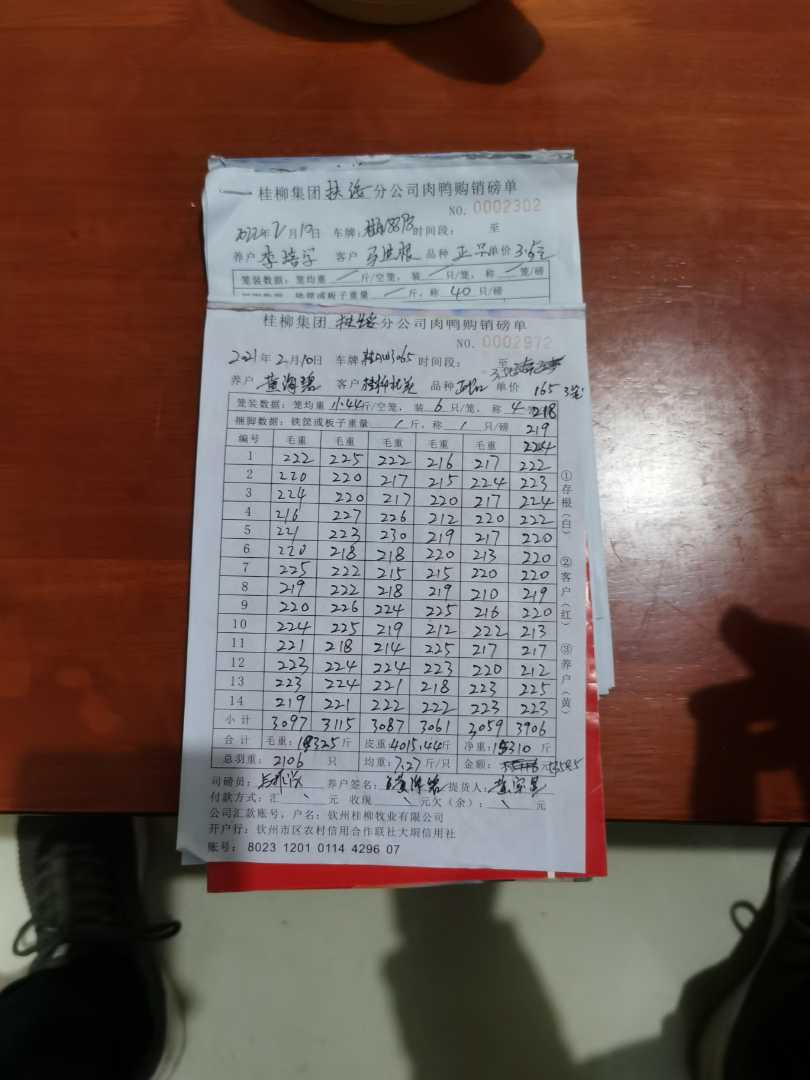 桂柳集团 扶绥 分公司肉鸭购销磅单
NO. 0002302
2022年2月10日 车牌: 时间段: 至
养户 李培学 客户 品种 正品 单价 3.5元
笼装数据: 笼均重 / 斤/空笼, 装 / 只/笼, 称 / 笼/磅
捆脚数据: 铁筐或板子重量 / 斤, 称 40 只/磅
桂柳集团 扶绥 分公司肉鸭购销磅单
NO. 0002972
2021年2月10日 车牌: 时间段: 至
养户 黄海碧 客户 品种 正品 单价 165
笼装数据: 笼均重 斤/空笼, 装 6 只/笼, 称 4 218
捆脚数据: 铁筐或板子重量 / 斤, 称 / 只/磅 219
编号 毛重 毛重 毛重 毛重 毛重 224
1 222 225 222 216 217 222
2 220 220 217 215 224 223
3 224 220 217 220 217 224
4 216 227 226 212 220 222
5 221 223 230 219 217 220
6 220 218 218 220 213 220
7 225 222 215 215 220 220
8 219 222 218 219 210 219
9 220 226 224 225 216 220
10 224 225 219 212 222 213
11 221 218 214 225 217 217
12 223 224 224 223 220 212
13 223 224 221 218 223 225
14 219 221 222 222 223 223
小计 3097 3115 3087 3061 3059 3906
合计 毛重: 19325 斤 皮重: 4015.44斤 净重: 15310 斤
总羽重: 2106 只 均重: 7.27 斤/只 金额: 元
司磅员: 养户签名: 黄海碧 提货人:
付款方式: 汇 \ 元 收现 \ 元欠(余): \ 元
公司汇款账号, 户名: 钦州桂柳牧业有限公司
开户行: 钦州市区农村信用合作联社大垌信用社
账号: 8023 1201 0114 4296 07
①存根(白) ②客户(红) ③养户(黄)